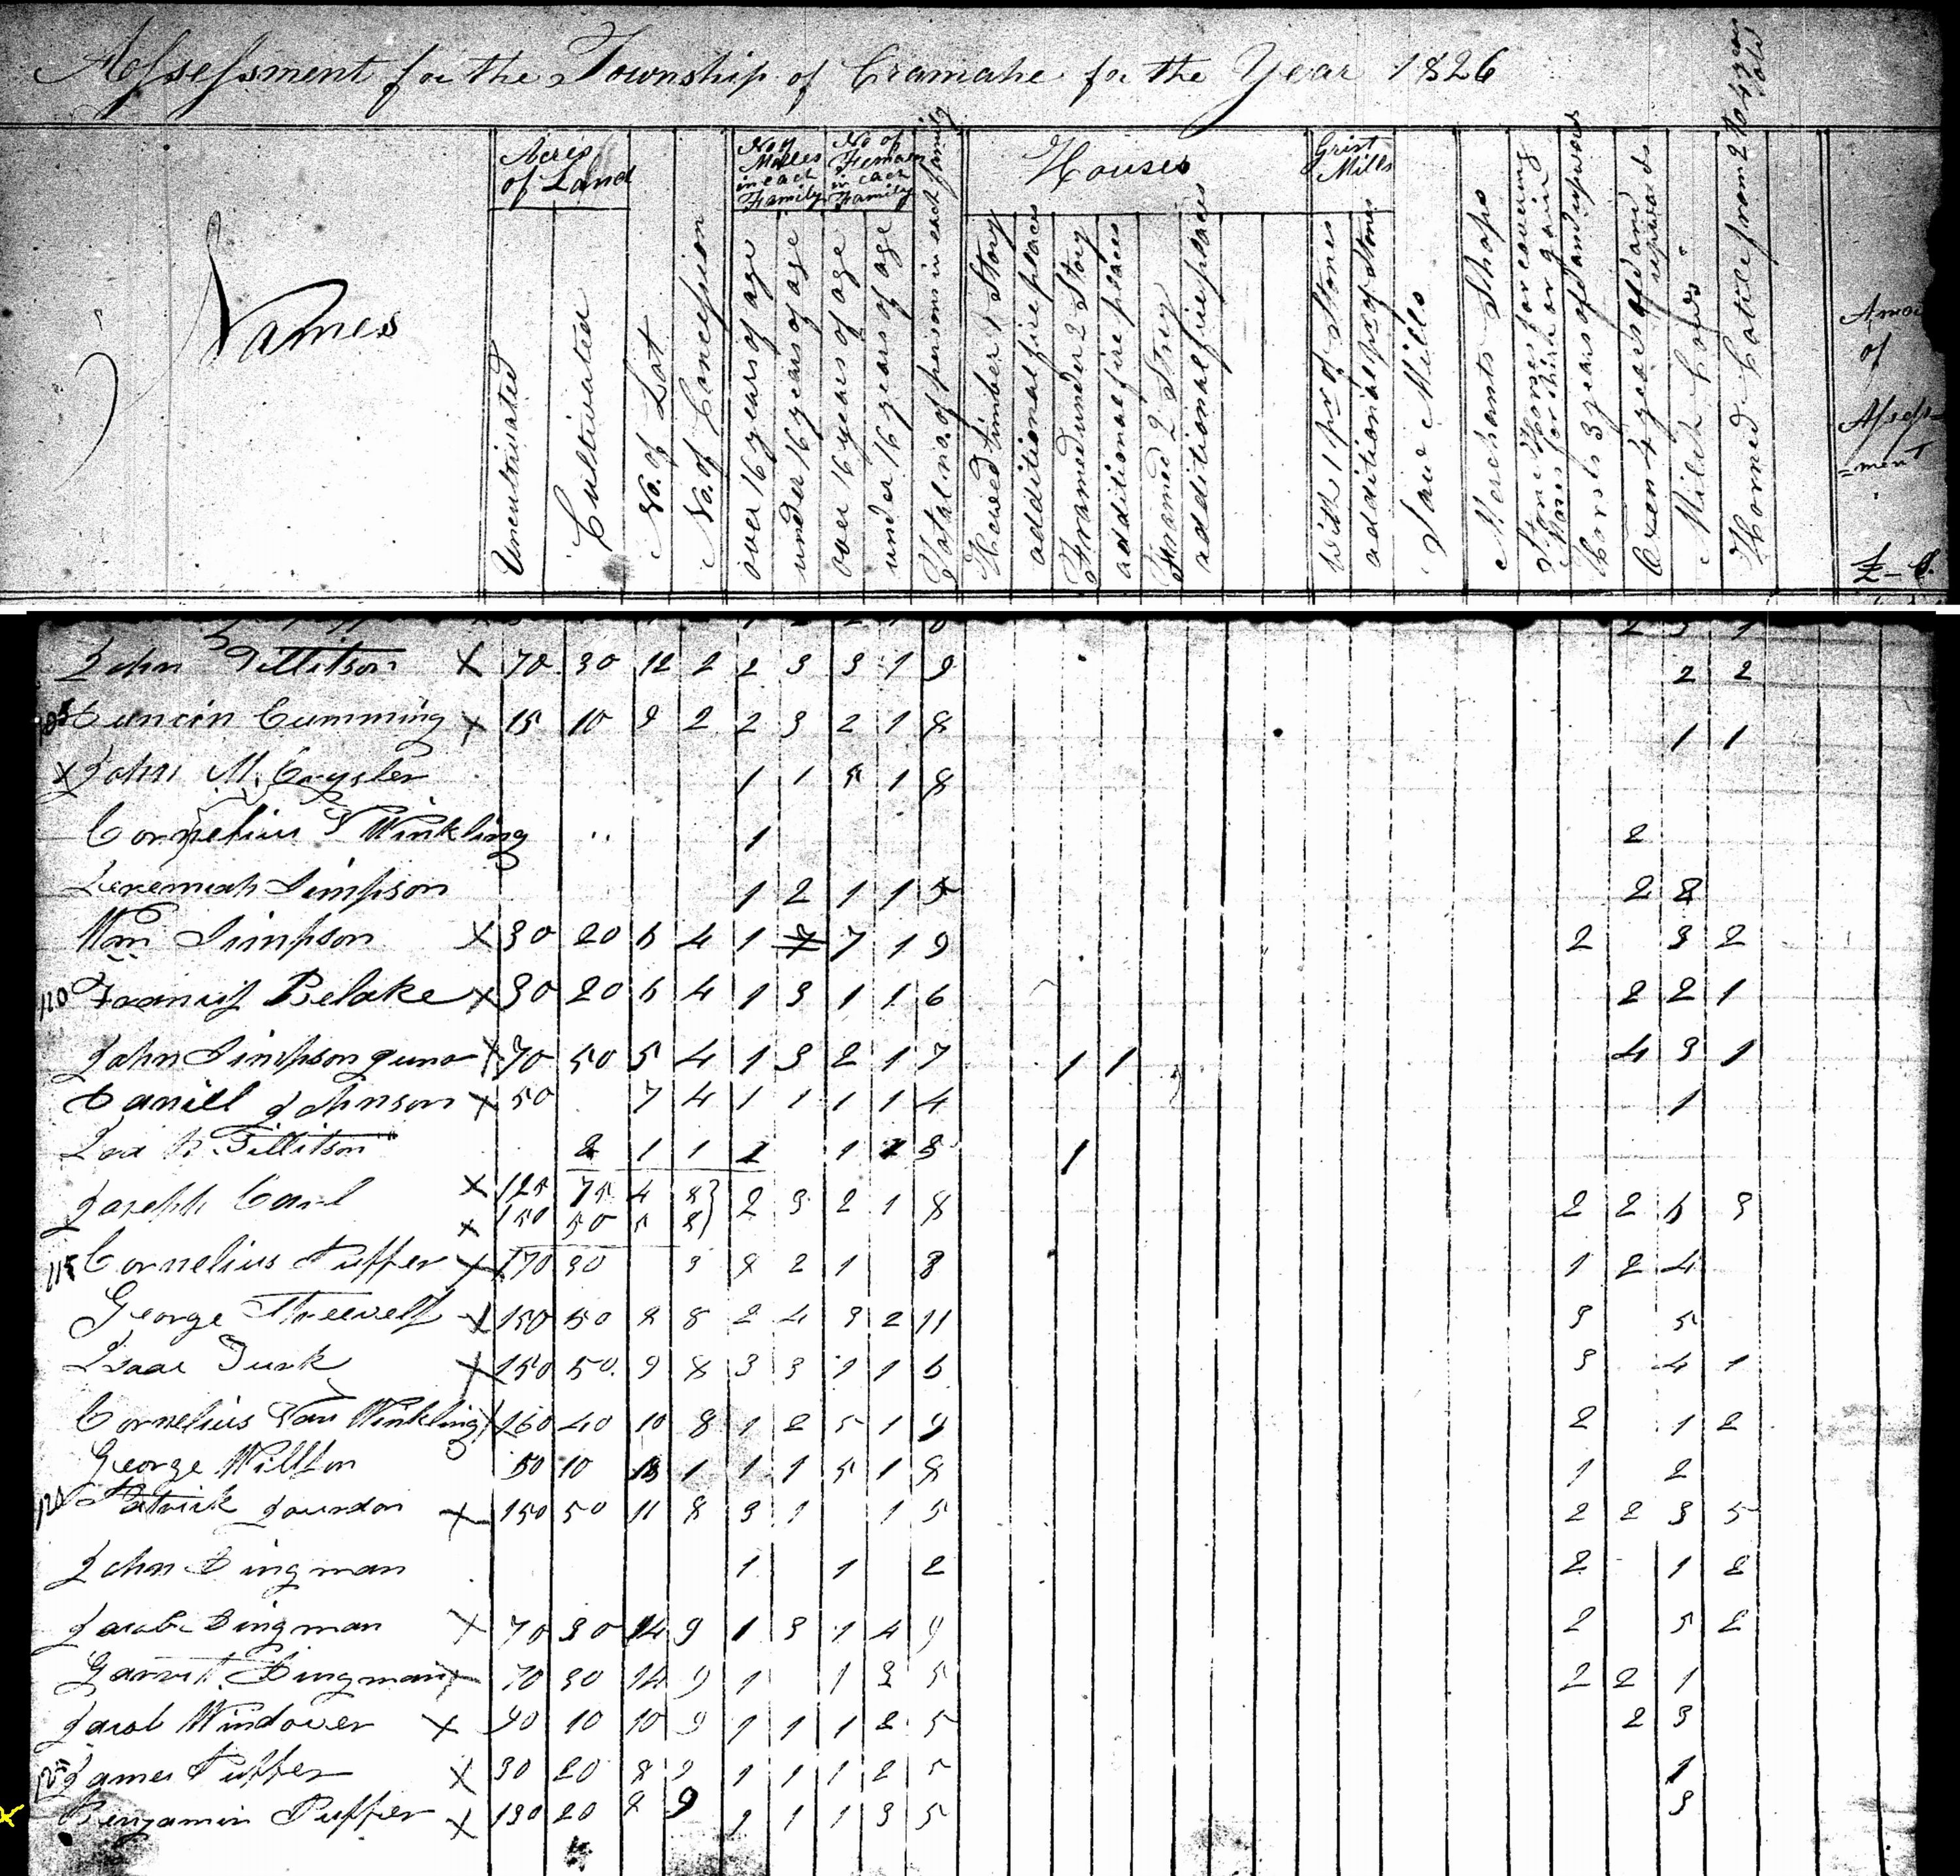 Assessment for the Township of Cramahe for the Year 1826
Names
Acres of Land
Uncultivated
Cultivated
No. of Lot
No. of Concession
No of Males in each Family
over 16 years of age
under 16 years of age
No of Females in each Family
over 16 years of age
under 16 years of age
Total no. of persons in each family
Houses
Hewed timber 1 Story
additional fire places
Framed under 2 Story
additional fire places
Framed 2 Story
additional fire places
Grist Mills
with 1 pr of Stones
additional pr of Stones
Saw Mills
Merchants Shops
Stone Horses for covering
Mares for hire or gain
horses 3 years old and upwards
Oxen 4 years old and upwards
Milch Cows
Horned Cattle from 2 to 4 years old
Amou
of
Assess
=ment
£ - S.
John Tillitson X 70 30 12 2 2 3 3 1 9 2 2
Duncin Cumming X 15 10 9 2 2 3 2 1 8 1 1
X John M. Crysler 1 1 5 1 8
Cornelius V Winkling 1 2
Jeremiah Simpson 1 2 1 1 5 2 2
Wm Simpson X 30 20 6 4 1 7 1 9 2 3 2
110 Francis Belake X 30 20 6 4 1 3 1 1 6 2 2 1
John Simpson Juno X 70 50 5 4 1 3 2 1 7 1 1 4 3 1
Daniell Johnson X 50 7 4 1 1 1 1 4 1
Tillitson 2 1 1 1 1 1 3 1
Joseph Carl X 125 75 4 8 } 2 3 2 1 8 2 2 6 3
X 150 50 5 8 }
115 Cornelius Puffer X 170 30 3 2 2 1 8 1 2 4
George X 150 50 8 8 2 4 3 2 11 3 5
Isaac Turk X 150 50 9 8 3 3 1 1 6 3 4 1
Cornelius Van Winkling X 160 40 10 8 1 2 5 1 9 2 1 2
George Willson 50 10 1 1 1 5 1 8 1 2
120 Patrick X 150 50 11 8 3 1 1 5 2 2 3 5
John Dingman 1 1 2 2 1 2
Jacob Dingman X 70 30 14 9 1 3 1 4 9 2 5 2
Garret Dingman X 70 30 14 9 1 1 3 5 2 2 1
Jacob Windover X 90 10 10 9 1 1 1 2 5 2 3
125 James Puffer X 30 20 8 9 1 1 1 2 5 1
X Benjamin Puffer X 130 20 8 9 1 1 1 3 5 3